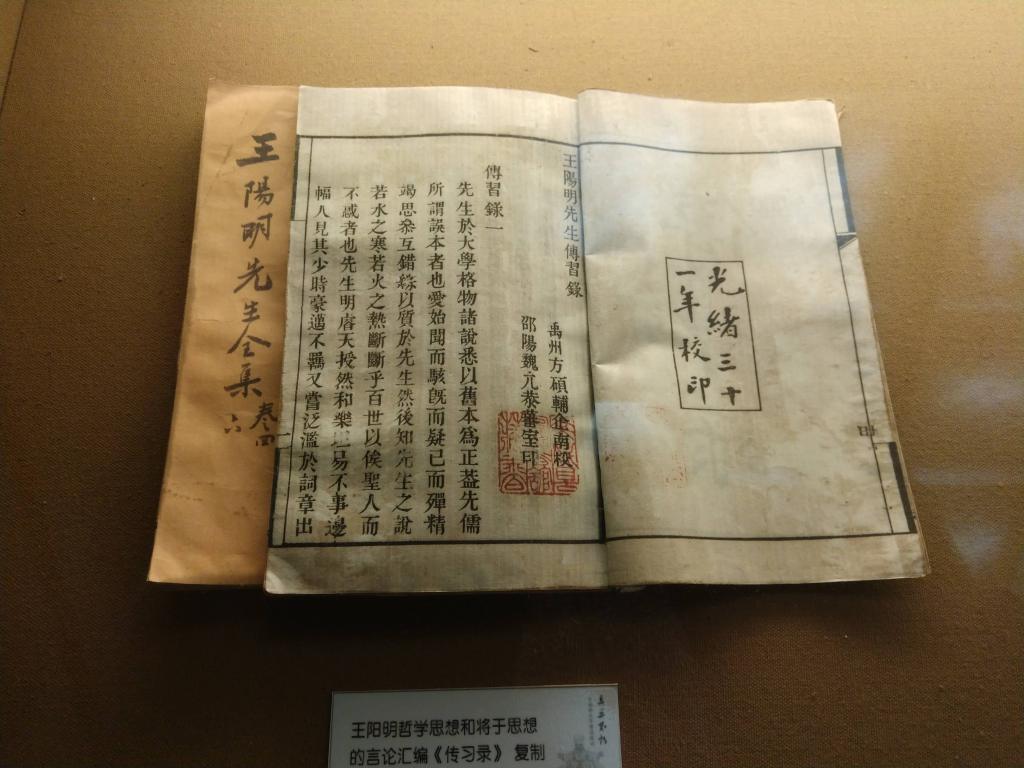 光緒三十
一年校印
王陽明先生傳習錄
禹州方碩輔企南校
邵陽魏元㳟蕃室印
傳習錄一
先生於大學格物諸說悉以舊本為正葢先儒
所謂誤本者也愛始聞而駭旣而疑已而殫精
竭思叅互錯綜以質於先生然後知先生之說
若水之寒若火之熱斷斷乎百世以俟聖人而
不惑者也先生明睿天授然和樂坦易不事邊
幅人見其少時豪邁不羈又嘗泛濫於詞章出
王陽明先生全集
卷四
六
王阳明哲学思想和将于思想
的言论汇编《传习录》 复制